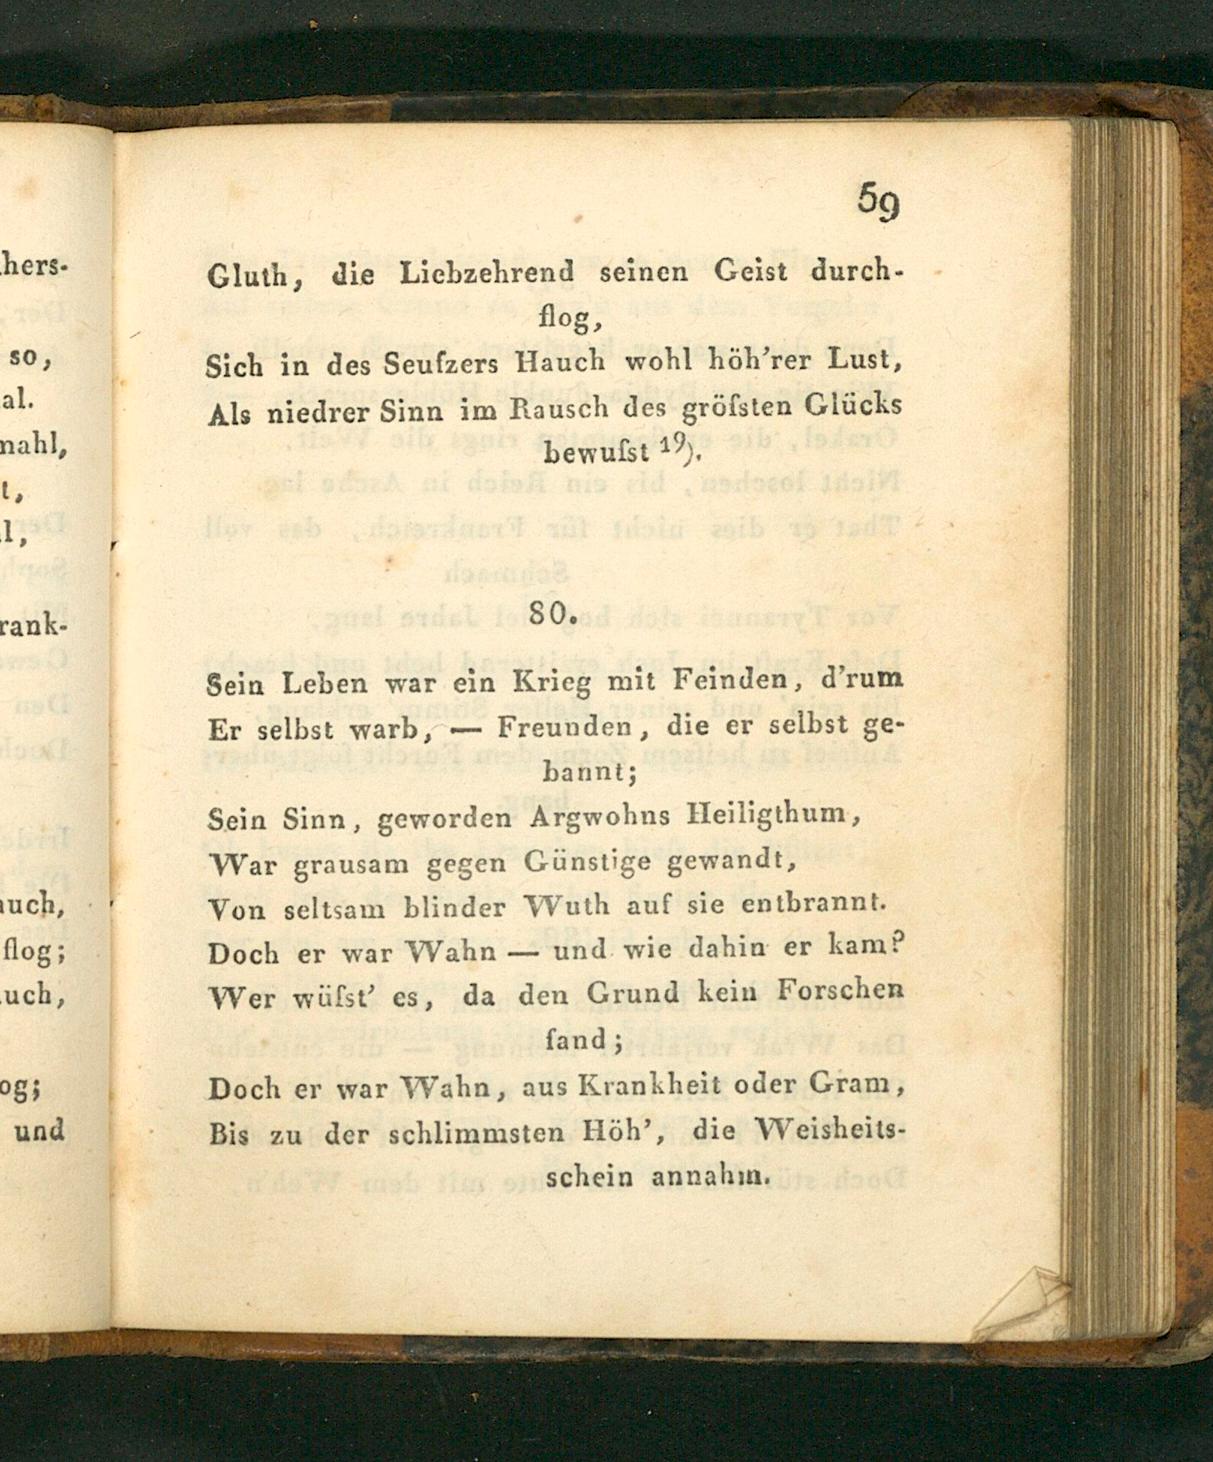 59
Gluth, die Liebzehrend seinen Geist durch-
flog,
Sich in des Seufzers Hauch wohl höh'rer Lust,
Als niedrer Sinn im Rausch des gröſsten Glücks
bewuſst 19).
80.
Sein Leben war ein Krieg mit Feinden, d'rum
Er selbst warb, — Freunden, die er selbst ge-
bannt;
Sein Sinn, geworden Argwohns Heiligthum,
War grausam gegen Günstige gewandt,
Von seltsam blinder Wuth auf sie entbrannt.
Doch er war Wahn — und wie dahin er kam?
Wer wüſst' es, da den Grund kein Forschen
fand;
Doch er war Wahn, aus Krankheit oder Gram,
Bis zu der schlimmsten Höh', die Weisheits-
schein annahm.
hers-
so,
al.
mahl,
t,
l,
rank-
auch,
flog;
auch,
og;
und